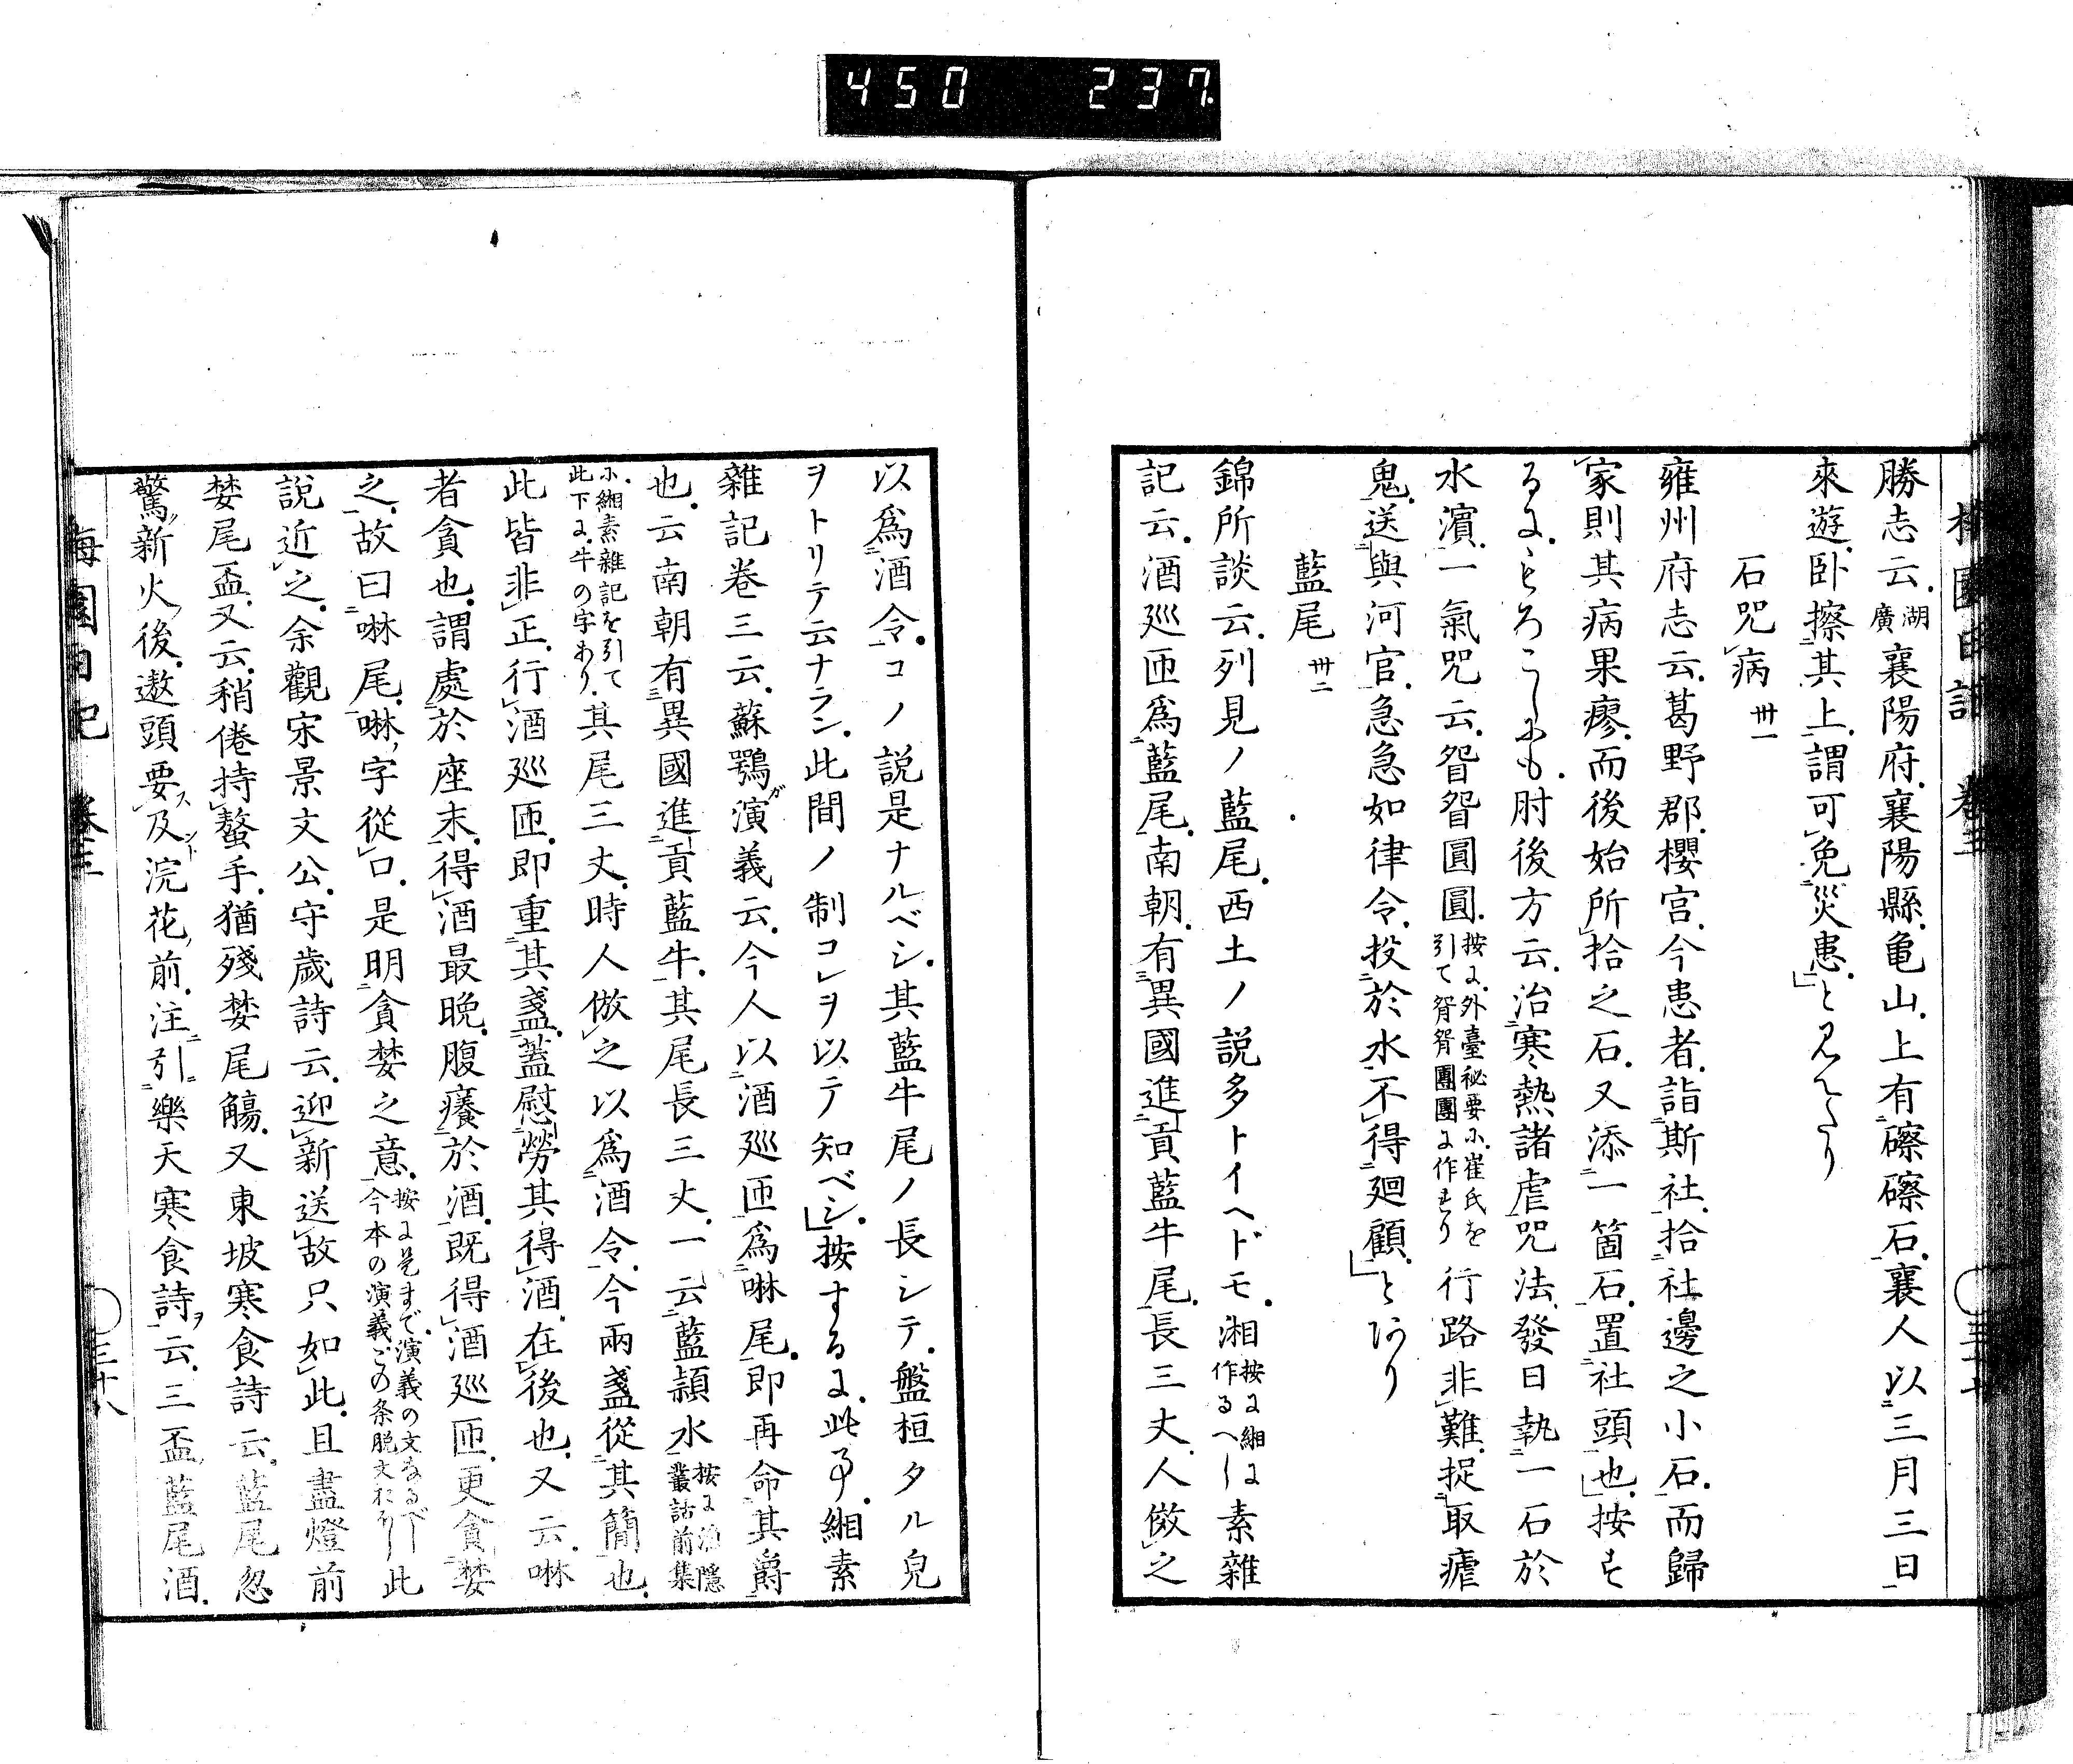 450 237
勝志云湖廣襄陽府襄陽縣亀山上有礤礤石襄人以三月三日
來遊卧擦其上謂可免災患と見えたり
石咒病 卅一
雍州府志云葛野郡櫻宮今患者詣斯社拾社邊之小石而歸
家則其病果瘳而後始所拾之石又添一箇石置社頭也按す
るに、もろこしにも肘後方云治寒熱諸虐咒法發日執一石於
水濱一氣咒云眢眢圓圓按に外臺秘要に崔氏を引て眢眢團團に作れり行路非難捉取瘧
鬼送與河官急急如律令投於水不得廻顧とあり
藍尾 卅二
錦所談云列見ノ藍尾西土ノ説多トイヘドモ湘按に緗に作るへし素雜
記云酒廵匝爲藍尾南朝有異國進貢藍牛尾長三丈人倣之
以爲酒令コノ説是ナルベシ其藍牛尾ノ長シテ盤桓タル皃
ヲトリテ云ナラン此間ノ制コレヲ以テ知ベシ按するに此事緗素
雜記巻三云蘇鶚演義云今人以酒廵匝爲啉尾即再命其爵
也云南朝有異國進貢藍牛其尾長三丈一云藍頴水按に漁隱叢話前集
に緗素雜記を引て此下に牛の字あり其尾三丈時人倣之以爲酒令今兩盞從其簡也
此皆非正行酒廵匝即重其盞蓋慰勞其得酒在後也又云啉
者貪也謂處於座末得酒最晩腹癢於酒既得酒廵匝更貪婪
之故曰啉尾啉字從口是明貪婪之意按に是まで演義の文なるべし今本の演義この条脱文あり此
説近之余觀宋景文公守歳詩云迎新送故只如此且盡燈前
婪尾盃又云稍倦持螯手猶殘婪尾觴又東坡寒食詩云藍尾忽
驚新火後遨頭要及浣花前注引樂天寒食詩云三盃藍尾酒
梅園日記 卷三 三十八